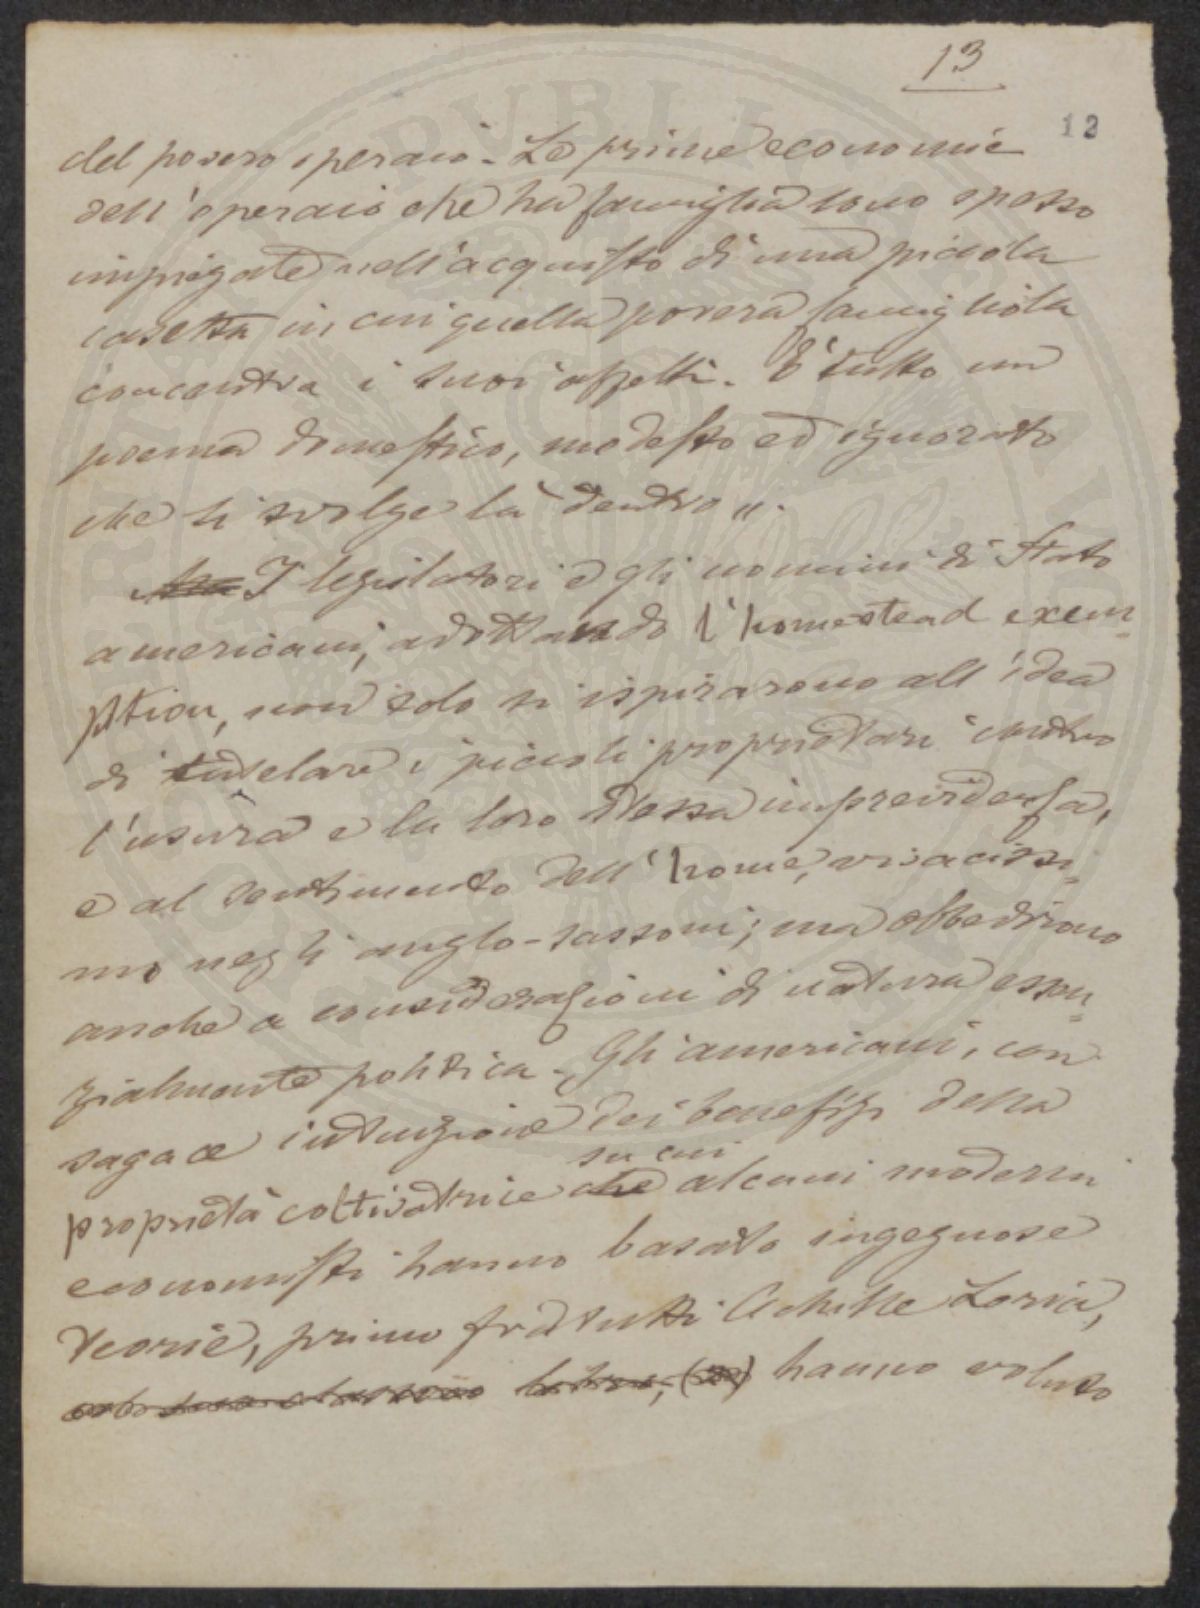 13
12
del povero operaio. Le prime economie
dell'operaio che ha famiglia sono spesso
impiegate nell'acquisto di una piccola
casetta in cui quella povera famigliola
concentra i suoi affetti. È tutto un
poema domestico, modesto ed ignorato
che si svolge là dentro".
I legislatori e gli uomini di Stato
americani, adottando l'homestead exem=
ption, non solo si ispirarono all'idea
di tutelare i piccoli proprietari contro
l'usura e la loro stessa imprevidenza,
e al sentimento dell'home, vivacissi=
mo negli anglo-sassoni; ma obbedirono
anche a considerazioni di natura essen=
zialmente politica. Gli americani, con
sagace intuizione dei benefizi della
su cui
proprietà coltivatrice che alcuni moderni
economisti hanno basato ingegnose
teorie, primo fra tutti Achille Loria,
hanno voluto